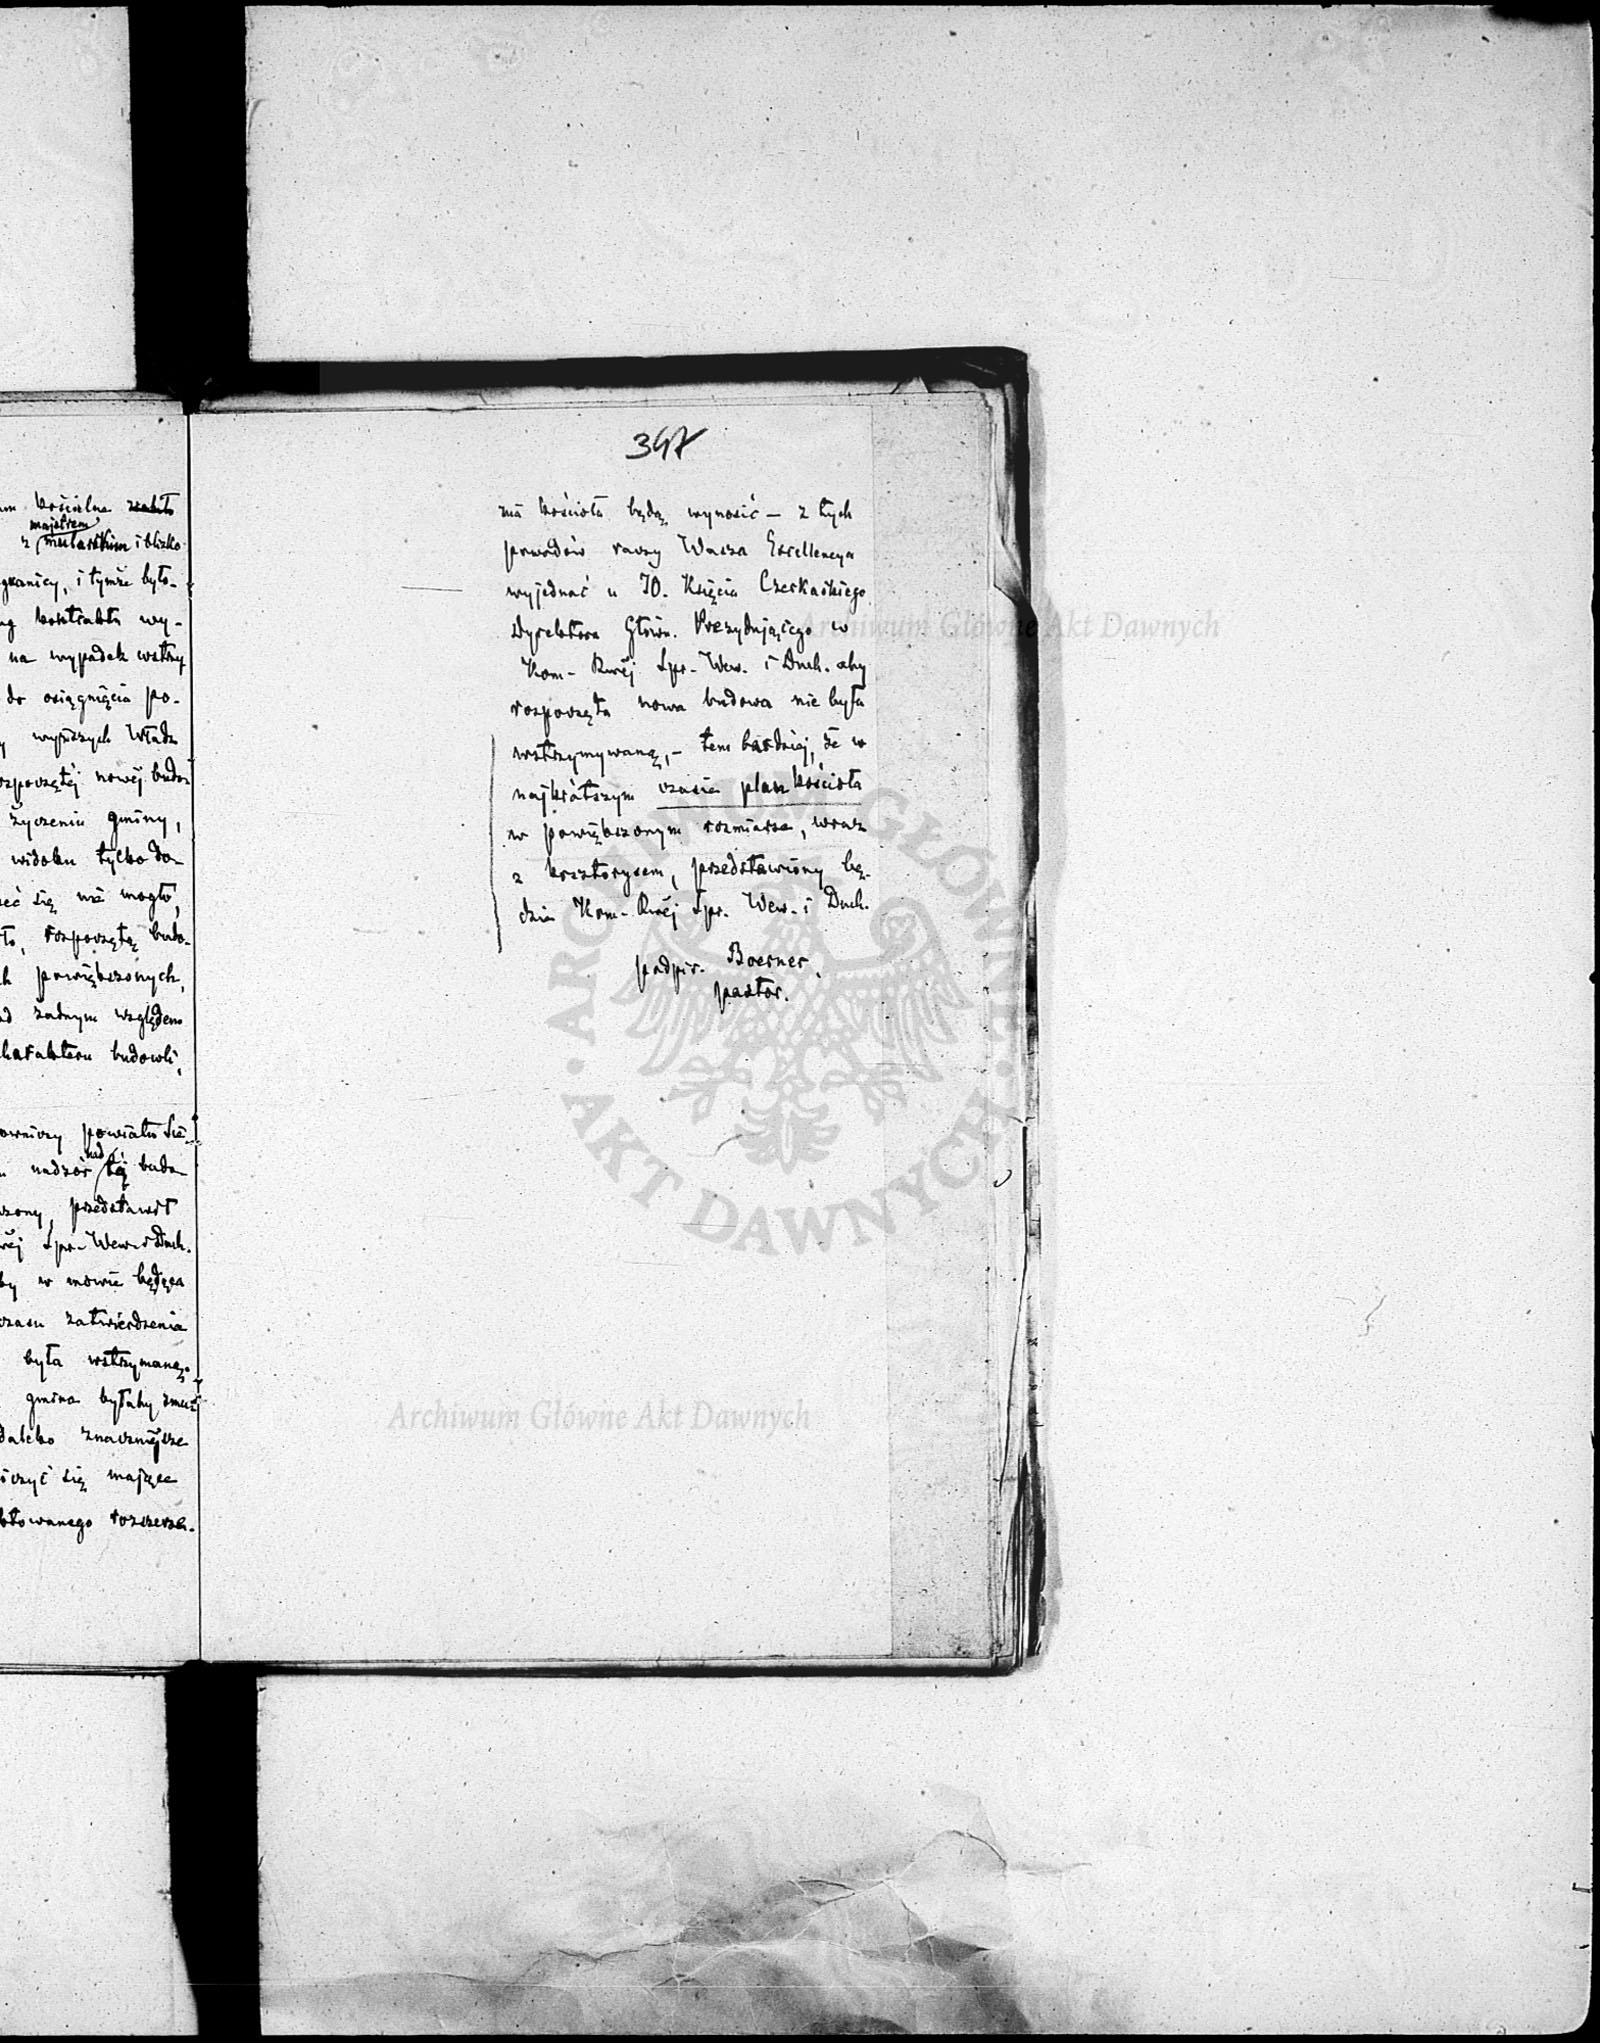 m kościelne
majstrem
z mularskim i blizko
granicy, i tymże było-
kontraktu wy-
na wypadek wstrzy
do osiągnięcia po-
wyższych Władz
ozpoczętéj nowéj budo
życzeniu gminy,
widoku tylko do-
eć się nie mogło,
ło, rozpoczętą budo-
h powiększonych,
d żadnym względem
harakteru budowli,
owniczy powiatu Sie-
nad
nadzór tą budo
zony, przedstawił
wéj Spr. Wew. i Duch.
by w mowie będąca
czasu zatwierdzenia
była wstrzymaną.
gmina byłaby zmusz
daleko znaczniejsze
iczyć się mające
ktowanego rozszerze-
347
nia kościoła będą wynosić – z tych
powodów raczy Wasza Excellencya
wyjednać u JO. Księcia Czerkaskiego
Dyrektora Główn. Prezydującego w
Kom. Rwéj Spr. Wew. i Duch. aby
rozpoczęta nowa budowa nie była
wstrzymywaną, – tem bardziej, że w
najkrótszym czasie plan kościoła
w powiększonym rozmiarze, wraz
z kosztorysem, przedstawiony bę-
dzie Kom. Rwéj Spr. Wew. i Duch.
podpis. Boerner,
pastor.
Archiwum Główne Akt Dawnych
ARCHIWUM GŁÓWNE · AKT DAWNYCH ·
Archiwum Główne Akt Dawnych